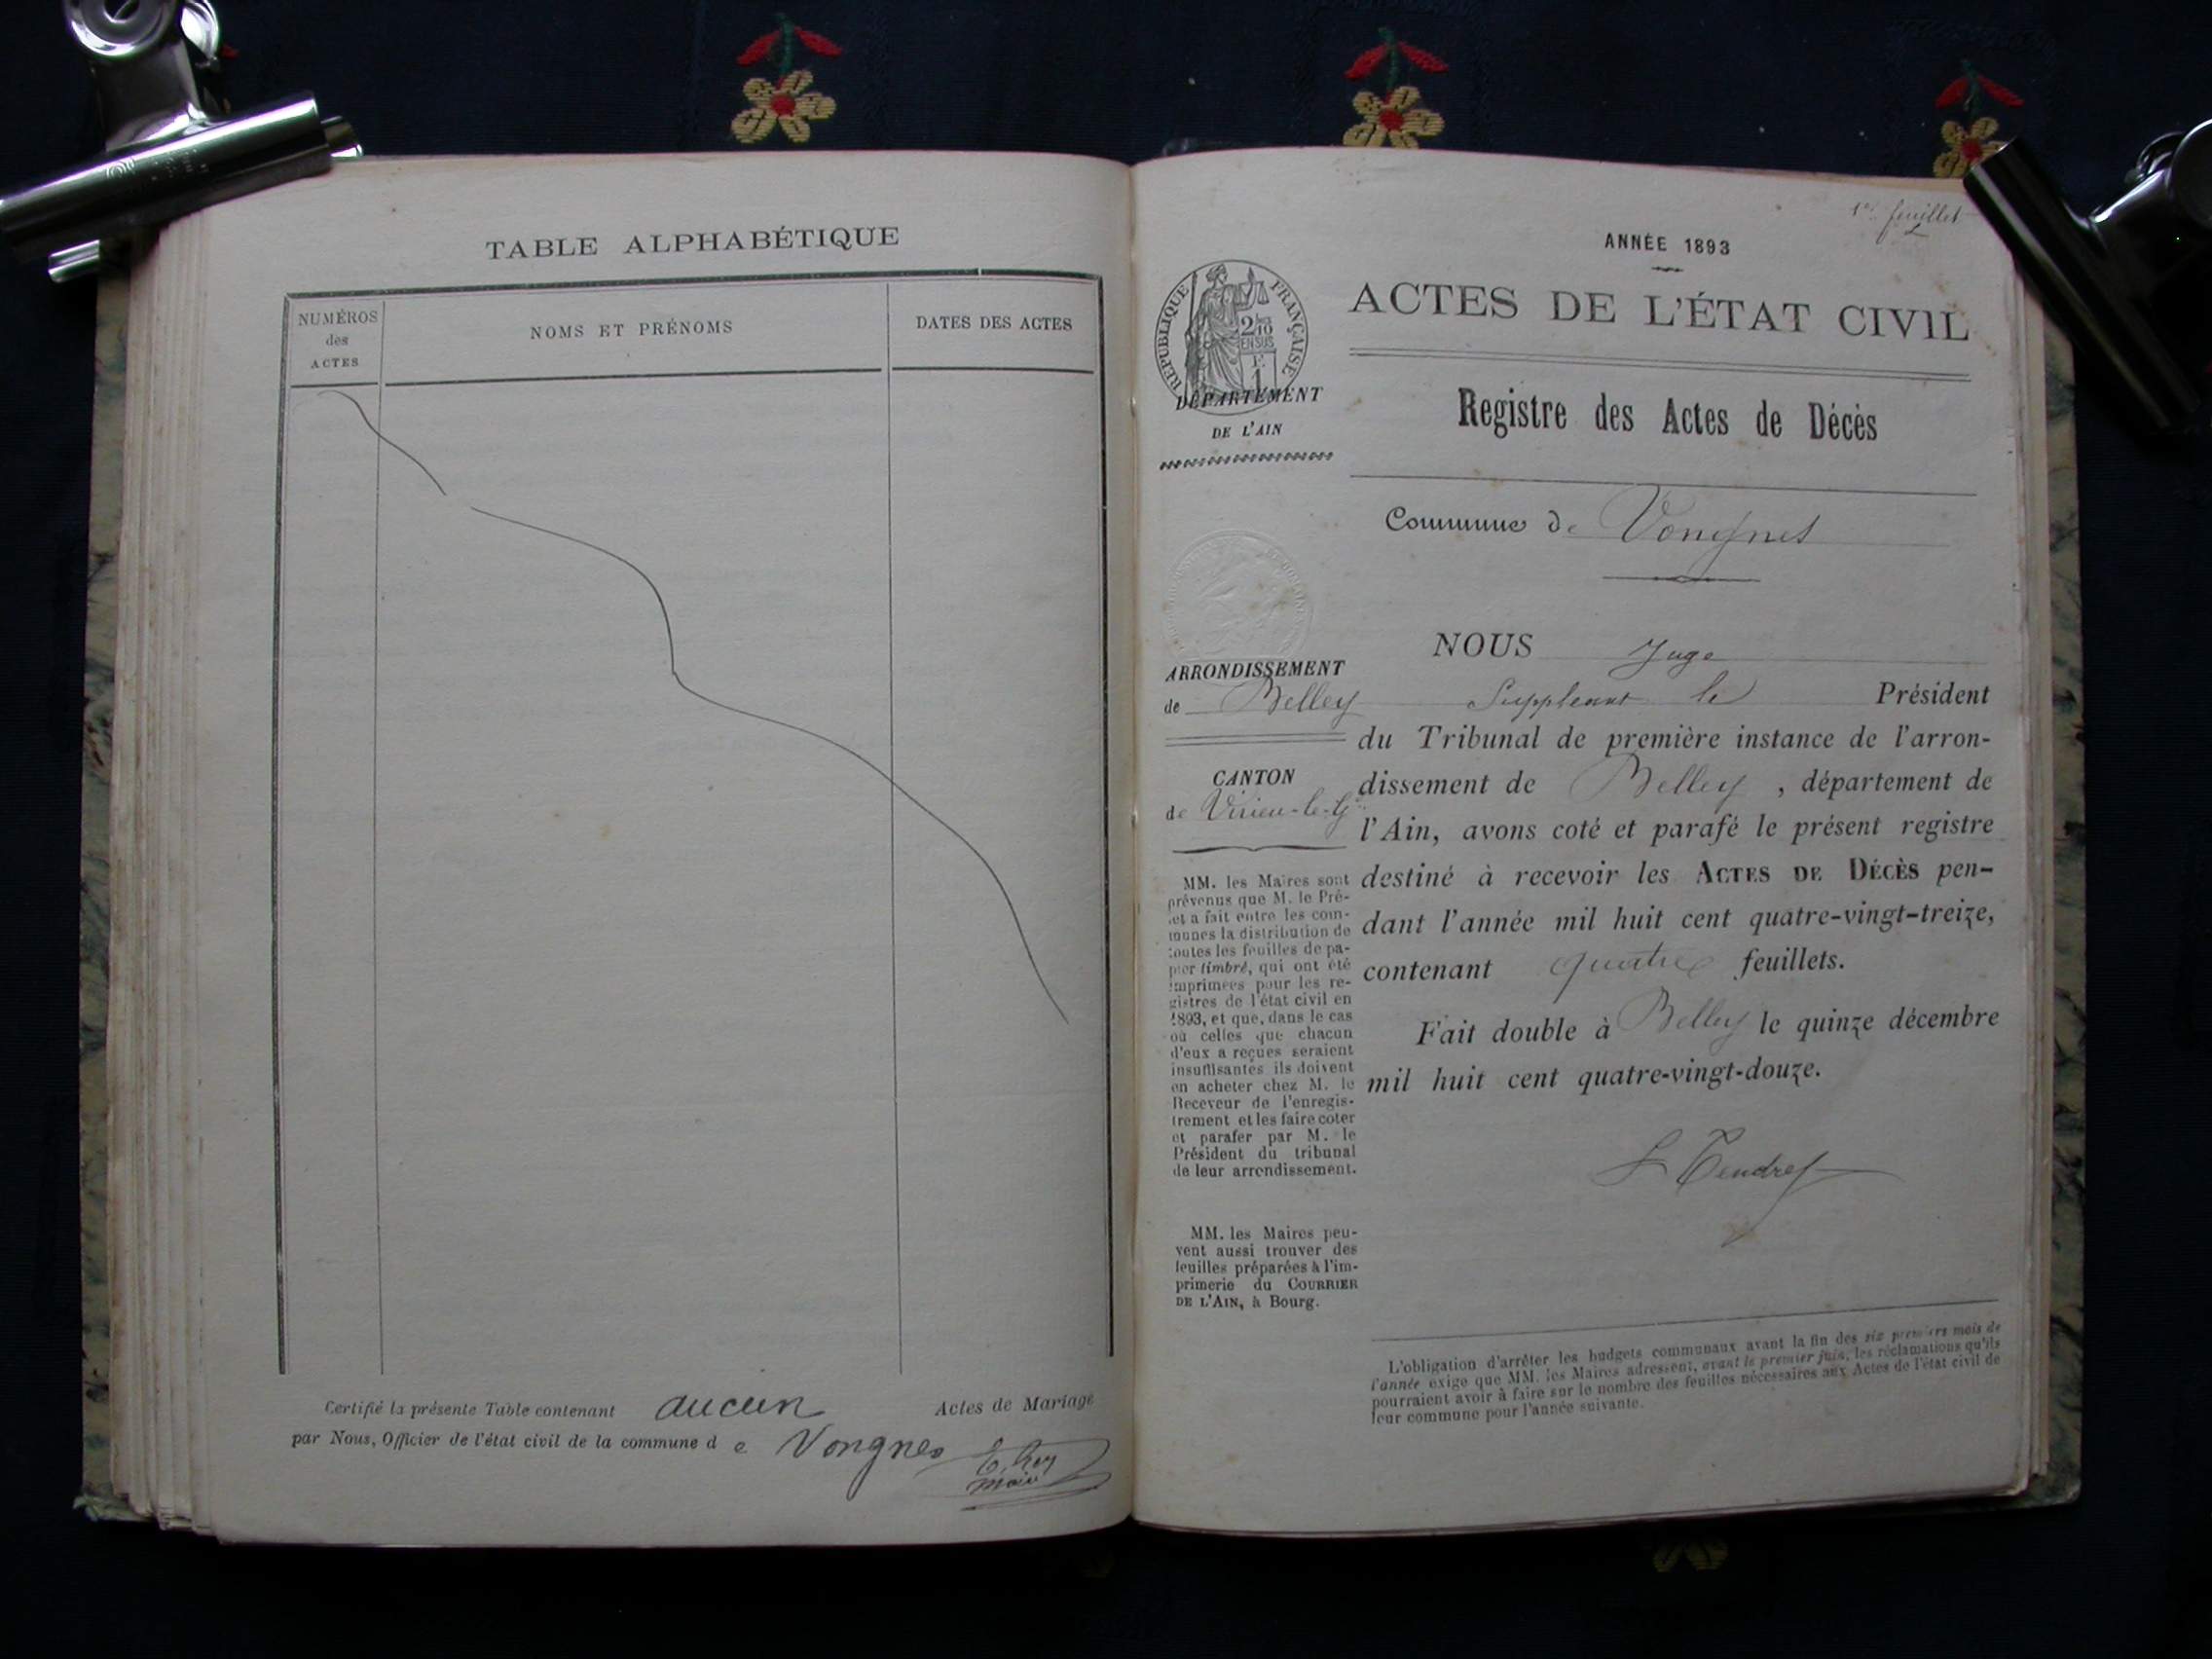 TABLE ALPHABÉTIQUE
NUMÉROS
des
ACTES
NOMS ET PRÉNOMS
DATES DES ACTES
Certifié la présente Table contenant aucun Actes de Mariage
par Nous, Officier de l'état civil de la commune d e Vongnes
maire
1er feuillet
ANNÉE 1893
ACTES DE L'ÉTAT CIVIL
RÉPUBLIQUE FRANÇAISE
2/10
EN SUS
1
DÉPARTEMENT
DE L'AIN
Registre des Actes de Décès
Commune de Vongnes
ARRONDISSEMENT
de Belley
CANTON
de Virieu-le-Gd
MM. les Maires sont
prévenus que M. le Pré-
fet a fait entre les com-
munes la distribution de
toutes les feuilles de pa-
pier timbré, qui ont été
imprimées pour les re-
gistres de l'état civil en
1893, et que, dans le cas
où celles que chacun
d'eux a reçues seraient
insuffisantes ils doivent
en acheter chez M. le
Receveur de l'enregis-
trement et les faire coter
et parafer par M. le
Président du tribunal
de leur arrondissement.
MM. les Maires peu-
vent aussi trouver des
feuilles préparées à l'im-
primerie du COURRIER
DE L'AIN, à Bourg.
NOUS Juge
Suppleant le Président
du Tribunal de première instance de l'arron-
dissement de Belley, département de
l'Ain, avons coté et parafé le présent registre
destiné à recevoir les ACTES DE DÉCÈS pen-
dant l'année mil huit cent quatre-vingt-treize,
contenant quatre feuillets.
Fait double à Belley le quinze décembre
mil huit cent quatre-vingt-douze.
L'obligation d'arrêter les budgets communaux avant la fin des six premiers mois de
l'année exige que MM. les Maires adressent, avant le premier juin, les réclamations qu'ils
pourraient avoir à faire sur le nombre des feuilles nécessaires aux Actes de l'état civil de
leur commune pour l'année suivante.